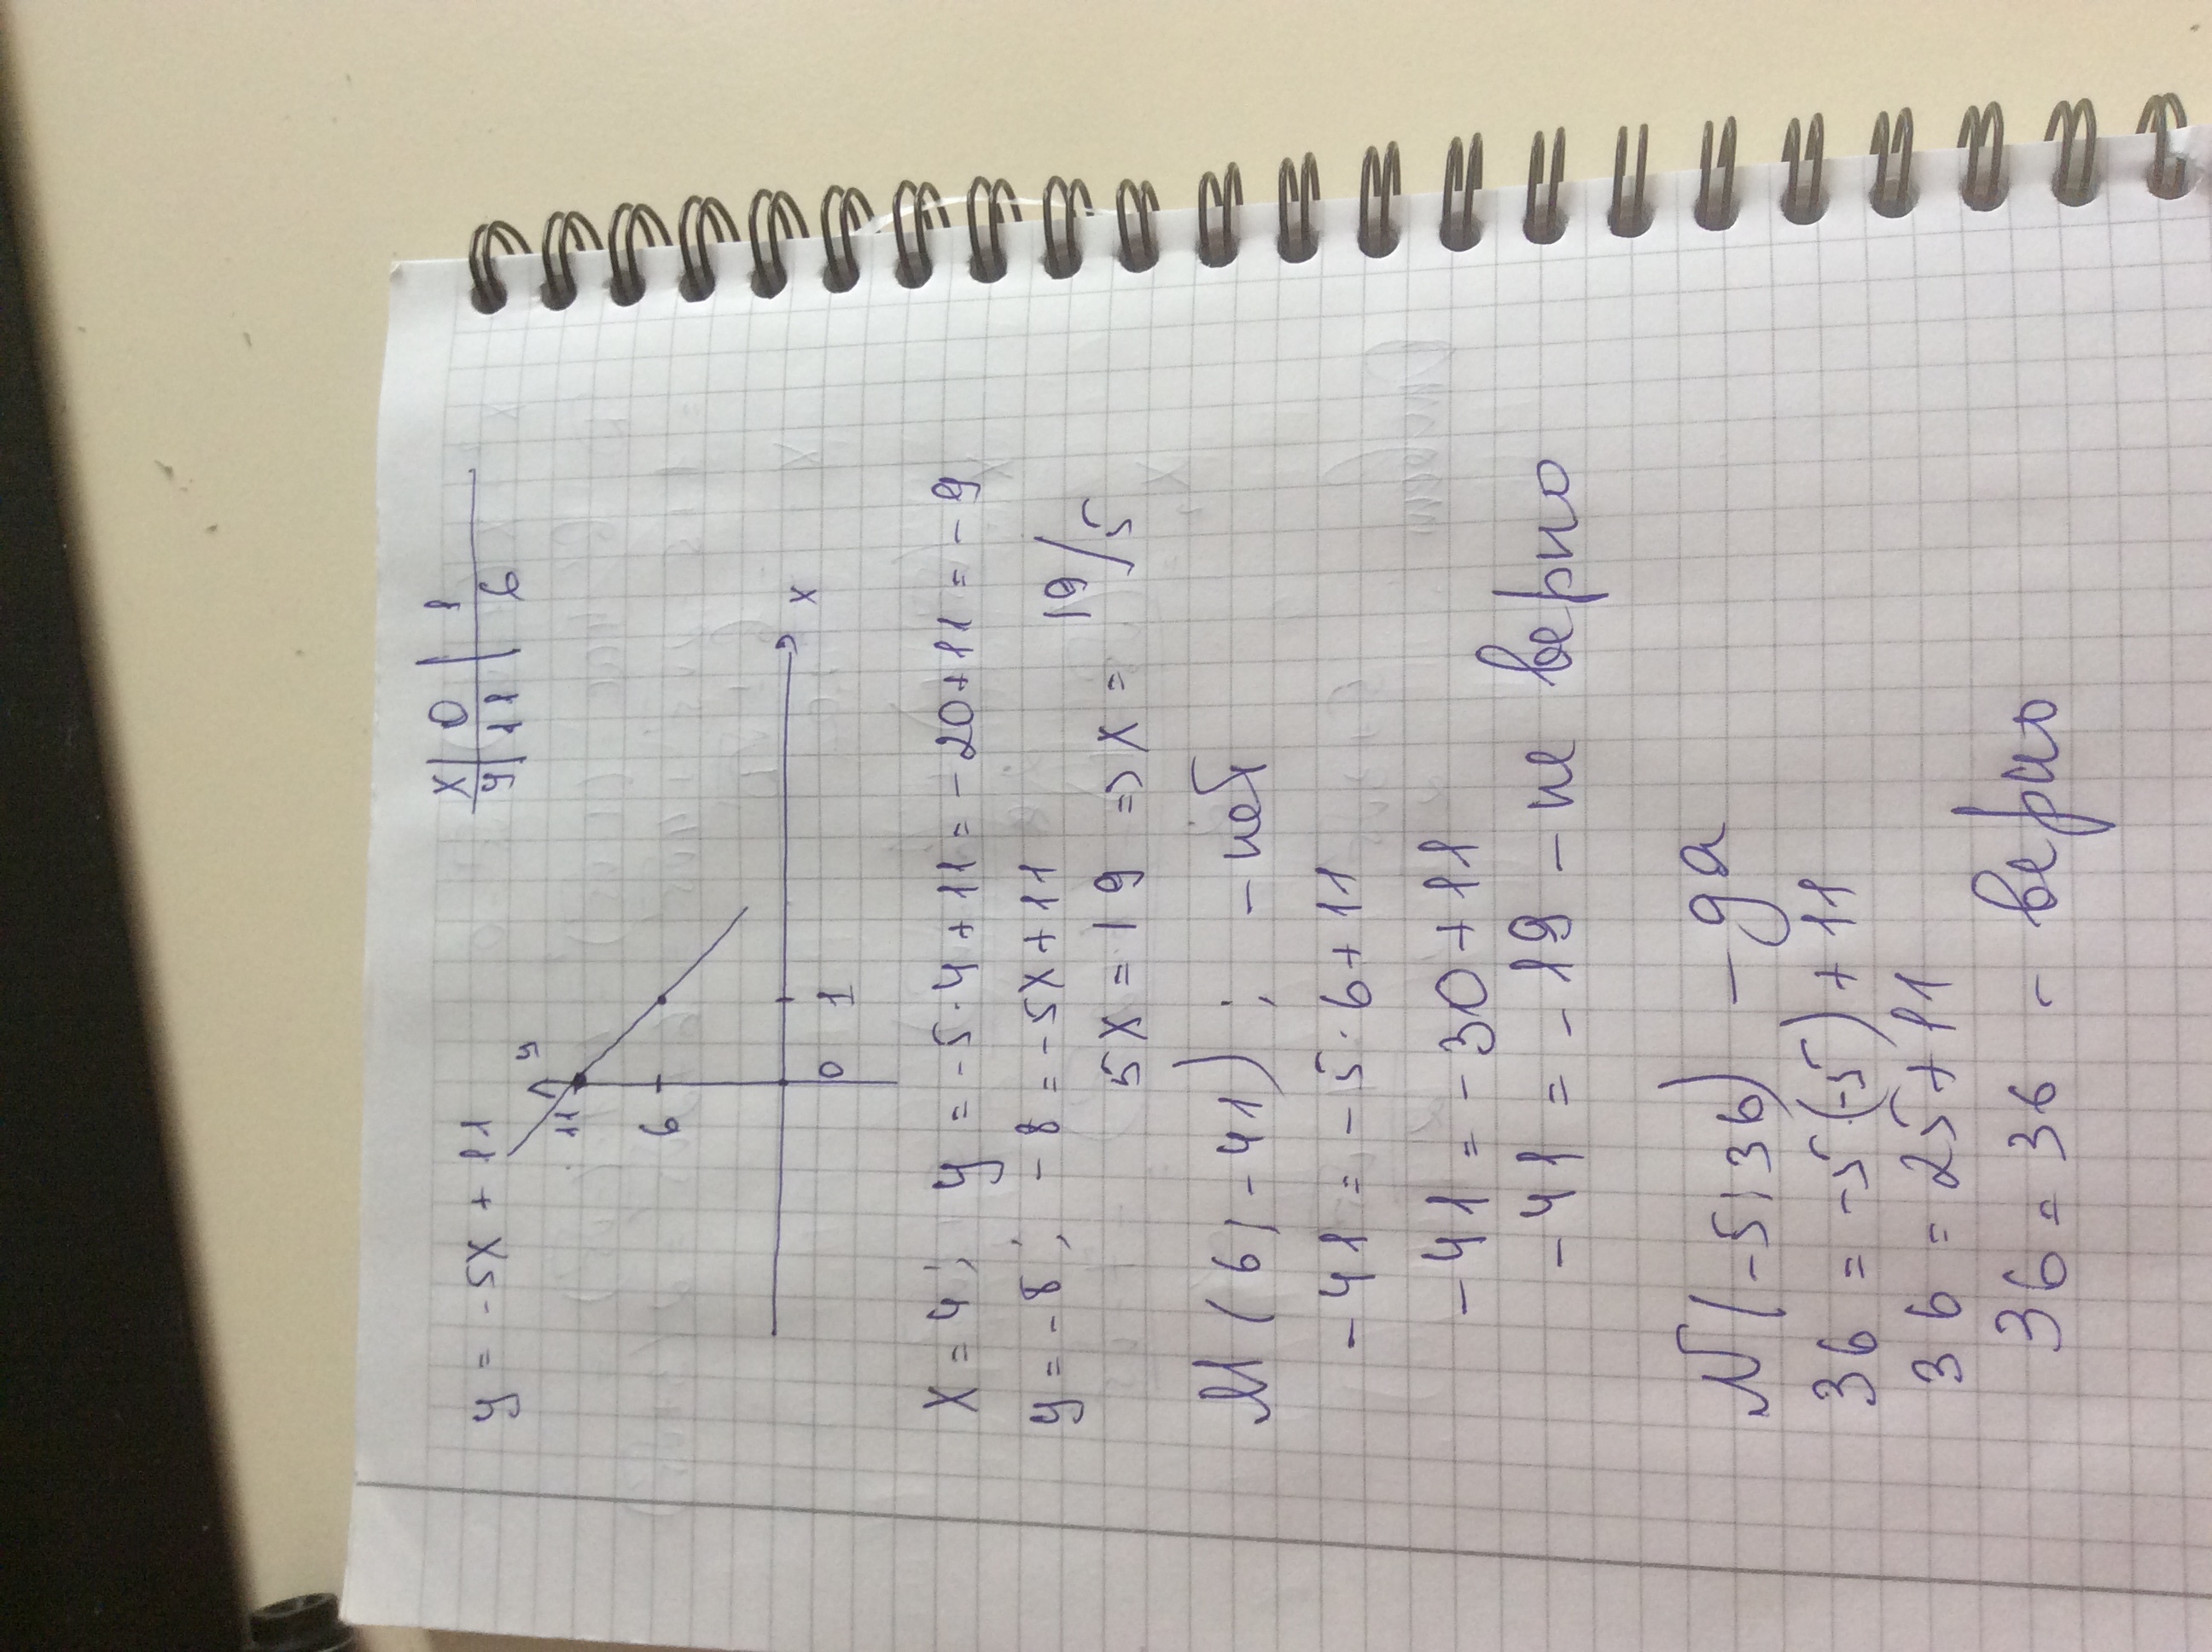 y = -5x + 11
x | 0 | 1
y | 11 | 6
y
11
6
x
0 1
x = 4; y = -5·4+11 = -20+11 = -9
y = -8; -8 = -5x+11
5x = 19 => x = 19/5
M (6; -41); - нет
-41 = -5·6+11
-41 = -30+11
-41 = -19 - не верно
N (-5; 36) - да
36 = -5·(-5)+11
36 = 25+11
36 = 36 - верно